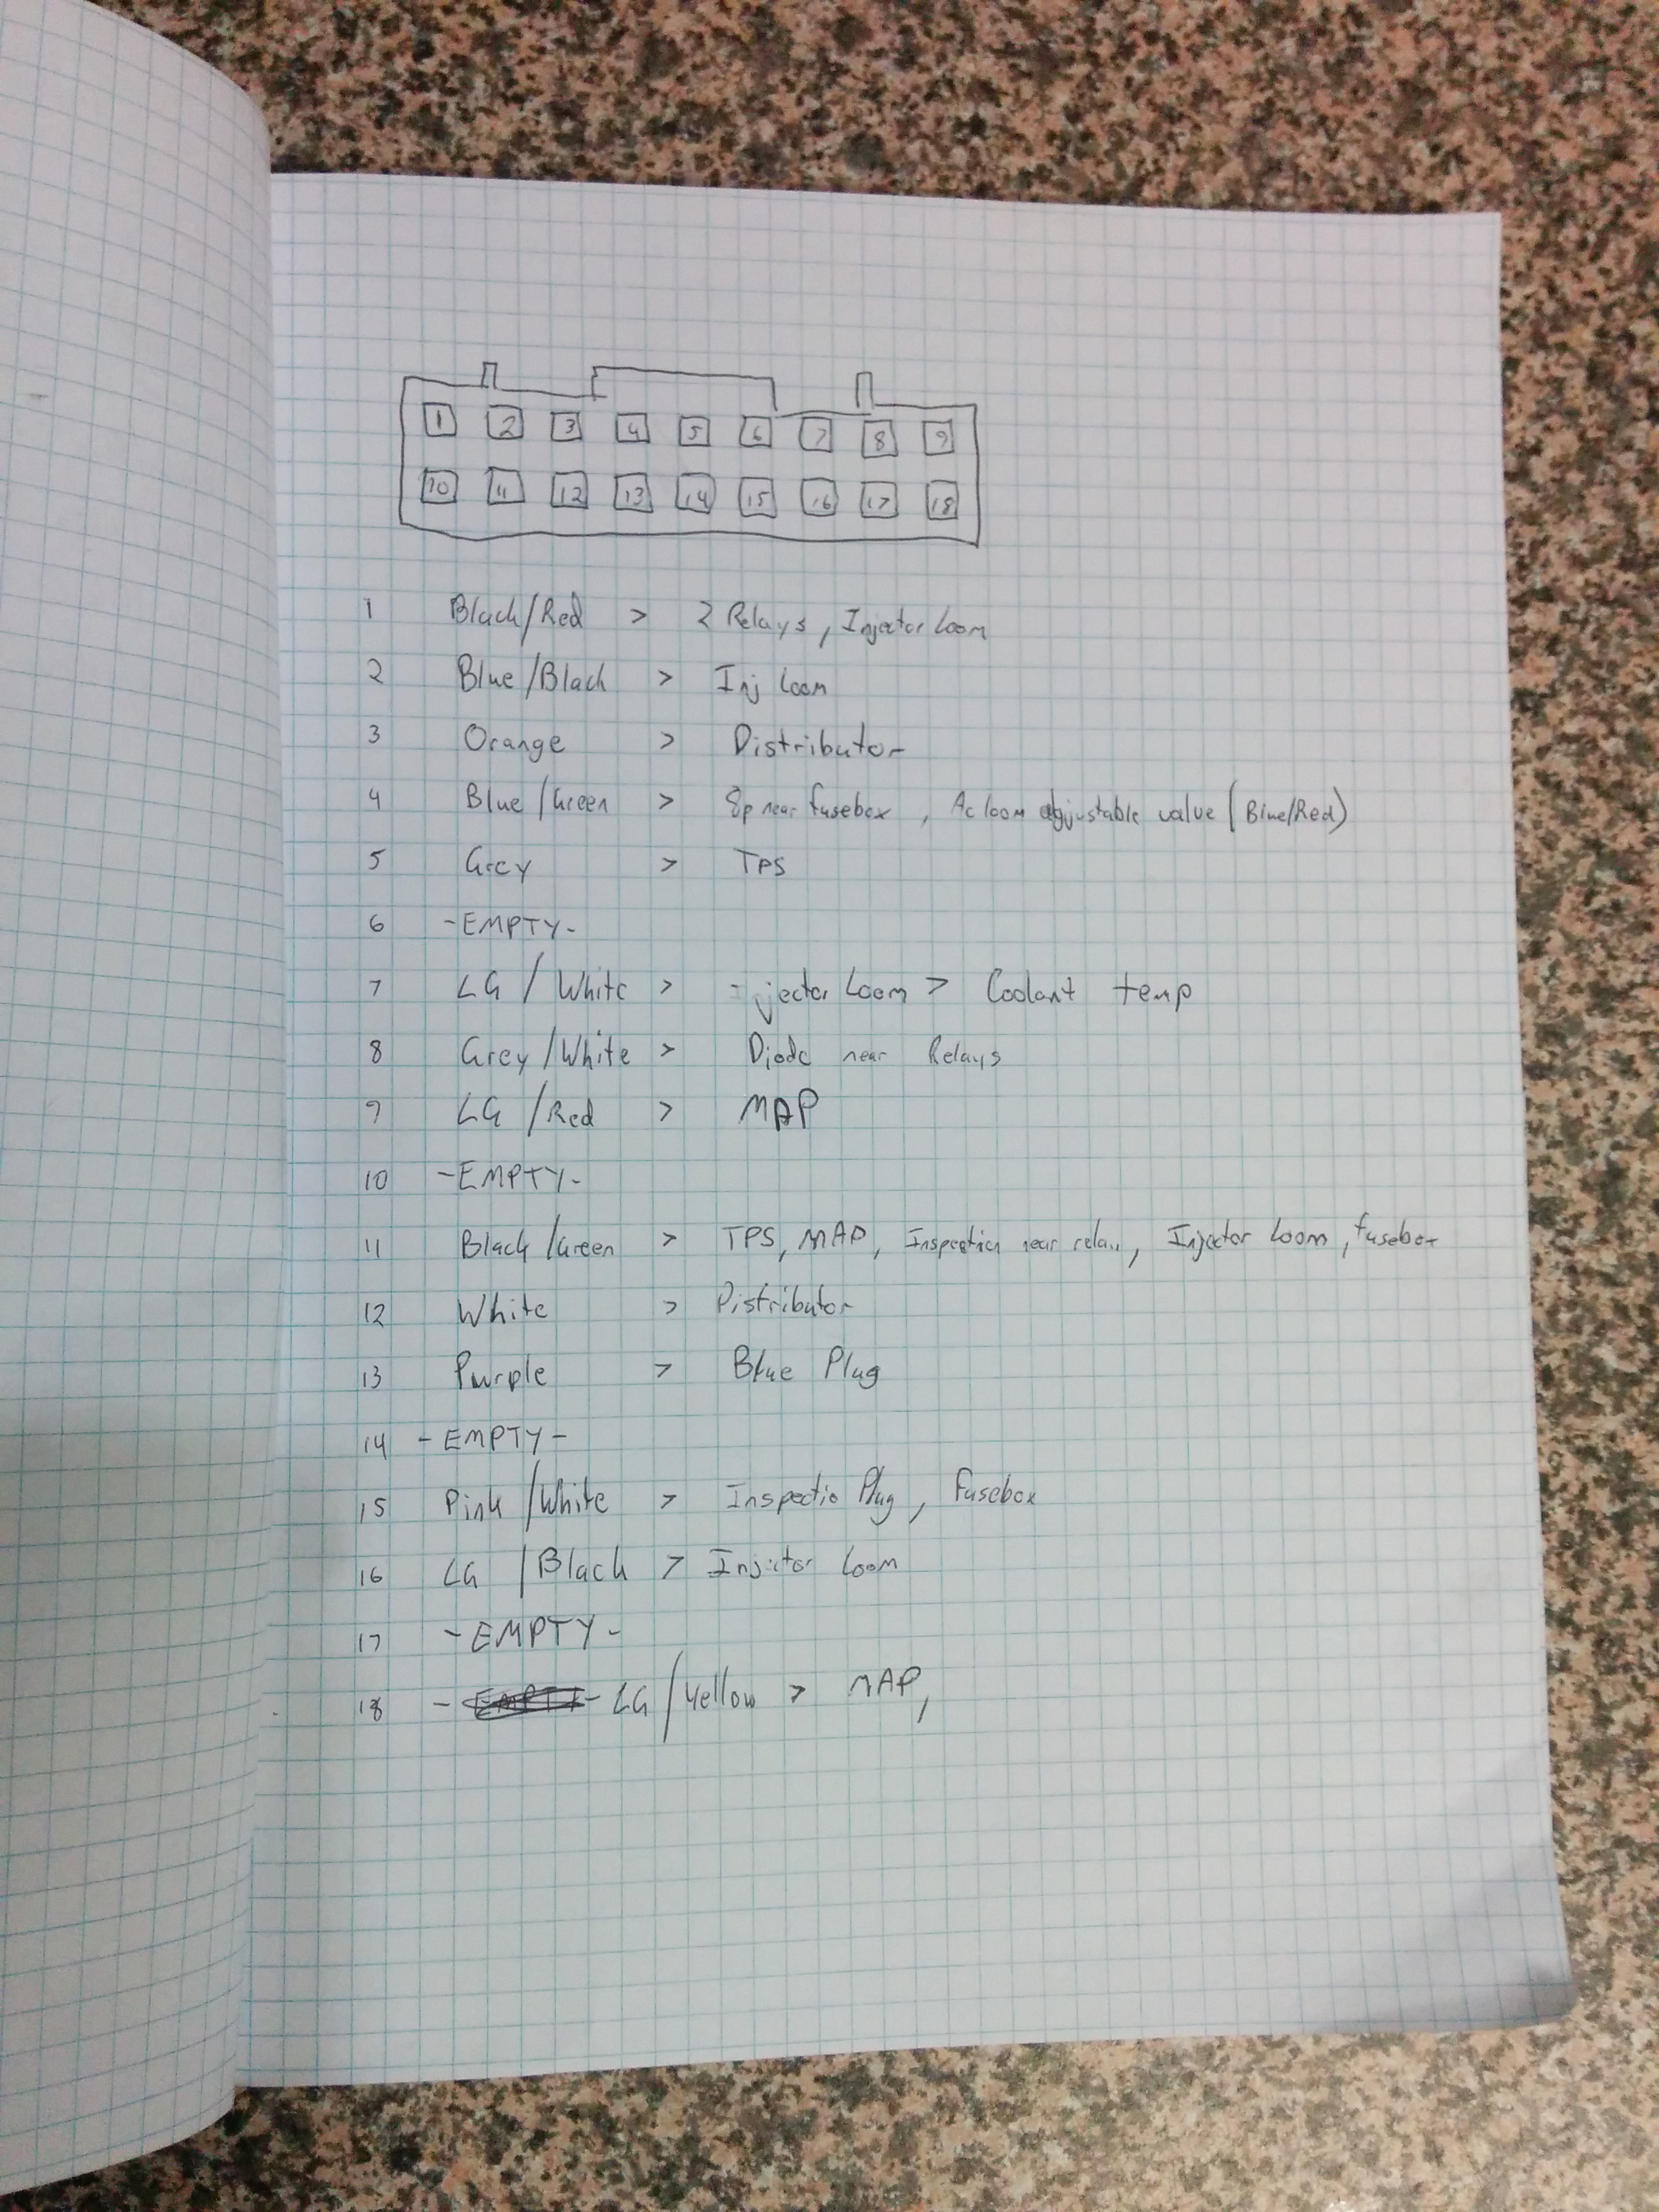 1 2 3 4 5 6 7 8 9
10 11 12 13 14 15 16 17 18
1 Black/Red > 2 Relays, Injector Loom
2 Blue/Black > Inj Loom
3 Orange > Distributor
4 Blue/Green > 8p near fusebox, Ac loom adjustable value (Blue/Red)
5 Grey > TPS
6 -EMPTY-
7 LG / White > Injector Loom > Coolant temp
8 Grey/White > Diode near Relays
9 LG /Red > MAP
10 -EMPTY-
11 Black/Green > TPS, MAP, Inspection near relay, Injector Loom, fusebox
12 White > Distributor
13 Purple > Blue Plug
14 -EMPTY-
15 Pink/White > Inspectio Plug, Fusebox
16 LG /Black > Injector Loom
17 -EMPTY-
18 - LG/Yellow > MAP,